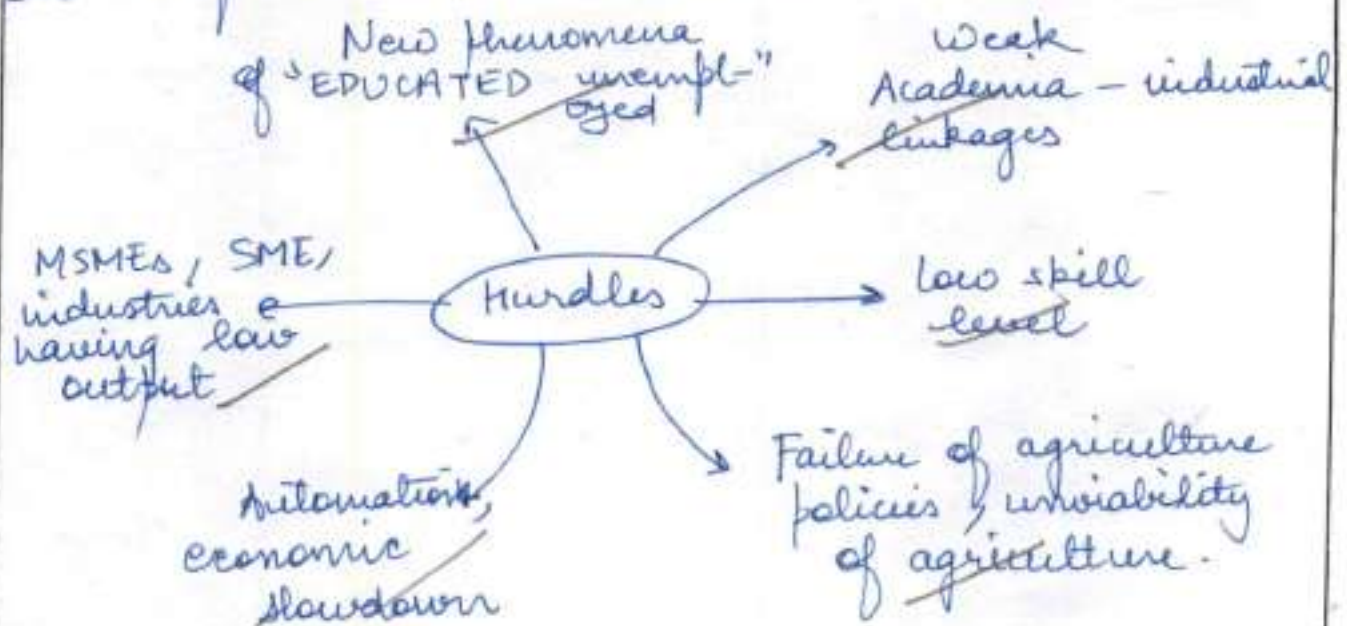 New phenomena
of "EDUCATED unempl-"
oyed
Weak
Academia - industrial
linkages
MSMEs, SME,
industries
having low
output
Hurdles
low skill
level
Automation,
economic
slowdown
Failure of agriculture
policies, unviability
of agriculture.